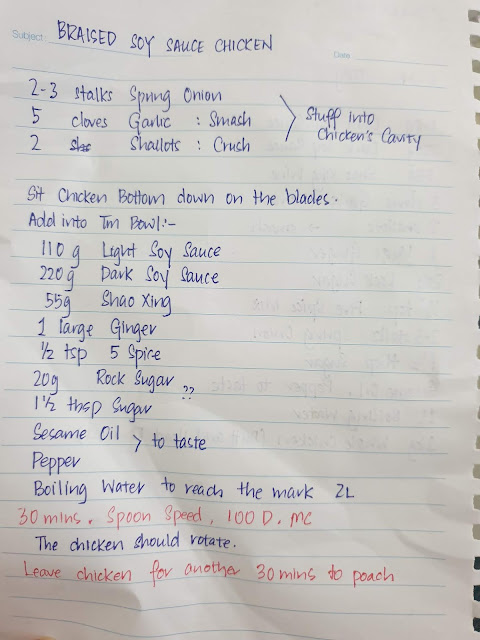 Subject: BRAISED SOY SAUCE CHICKEN
Date
2-3 stalks Spring Onion
5 cloves Garlic : Smash
2 Shallots : Crush
Stuff into
Chicken's Cavity
Sit Chicken Bottom down on the blades.
Add into Tm Bowl:-
110 g Light Soy Sauce
220g Dark Soy Sauce
55g Shao Xing
1 large Ginger
1/2 tsp 5 Spice
20g Rock Sugar ??
1 1/2 tbsp Sugar
Sesame Oil > to taste
Pepper
Boiling Water to reach the mark 2L
30 mins. Spoon Speed, 100 D. MC
The chicken should rotate.
Leave chicken for another 30 mins to poach